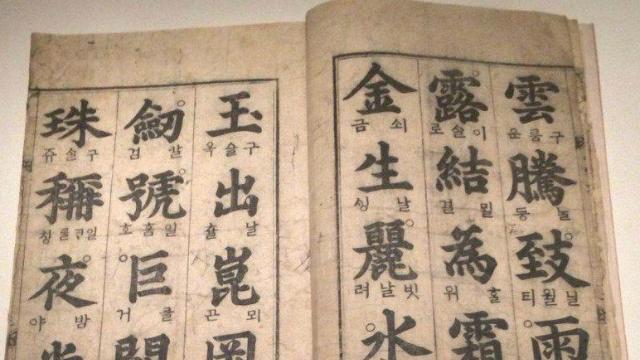 雲 구룸운 騰 등 致 닐월티 雨
露 이슬로 結 결 為 위 霜
金 쇠금 生 날싱 麗 빗날려 水
玉 구슬옥 出 날츌 崑 뫼곤 岡
劒 칼검 號 일홈호 巨 클거 闕
珠 구슬쥬 稱 칭 夜 밤야 光